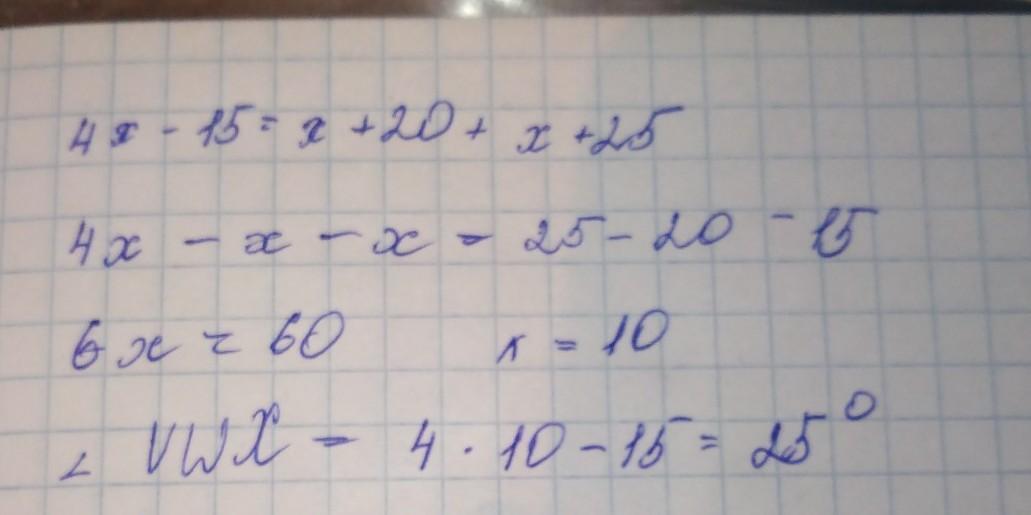 4x - 15 = x + 20 + x + 25
4x - x - x = 25 - 20 - 15
6x = 60 x = 10
∠ VWX = 4 · 10 - 15 = 25°